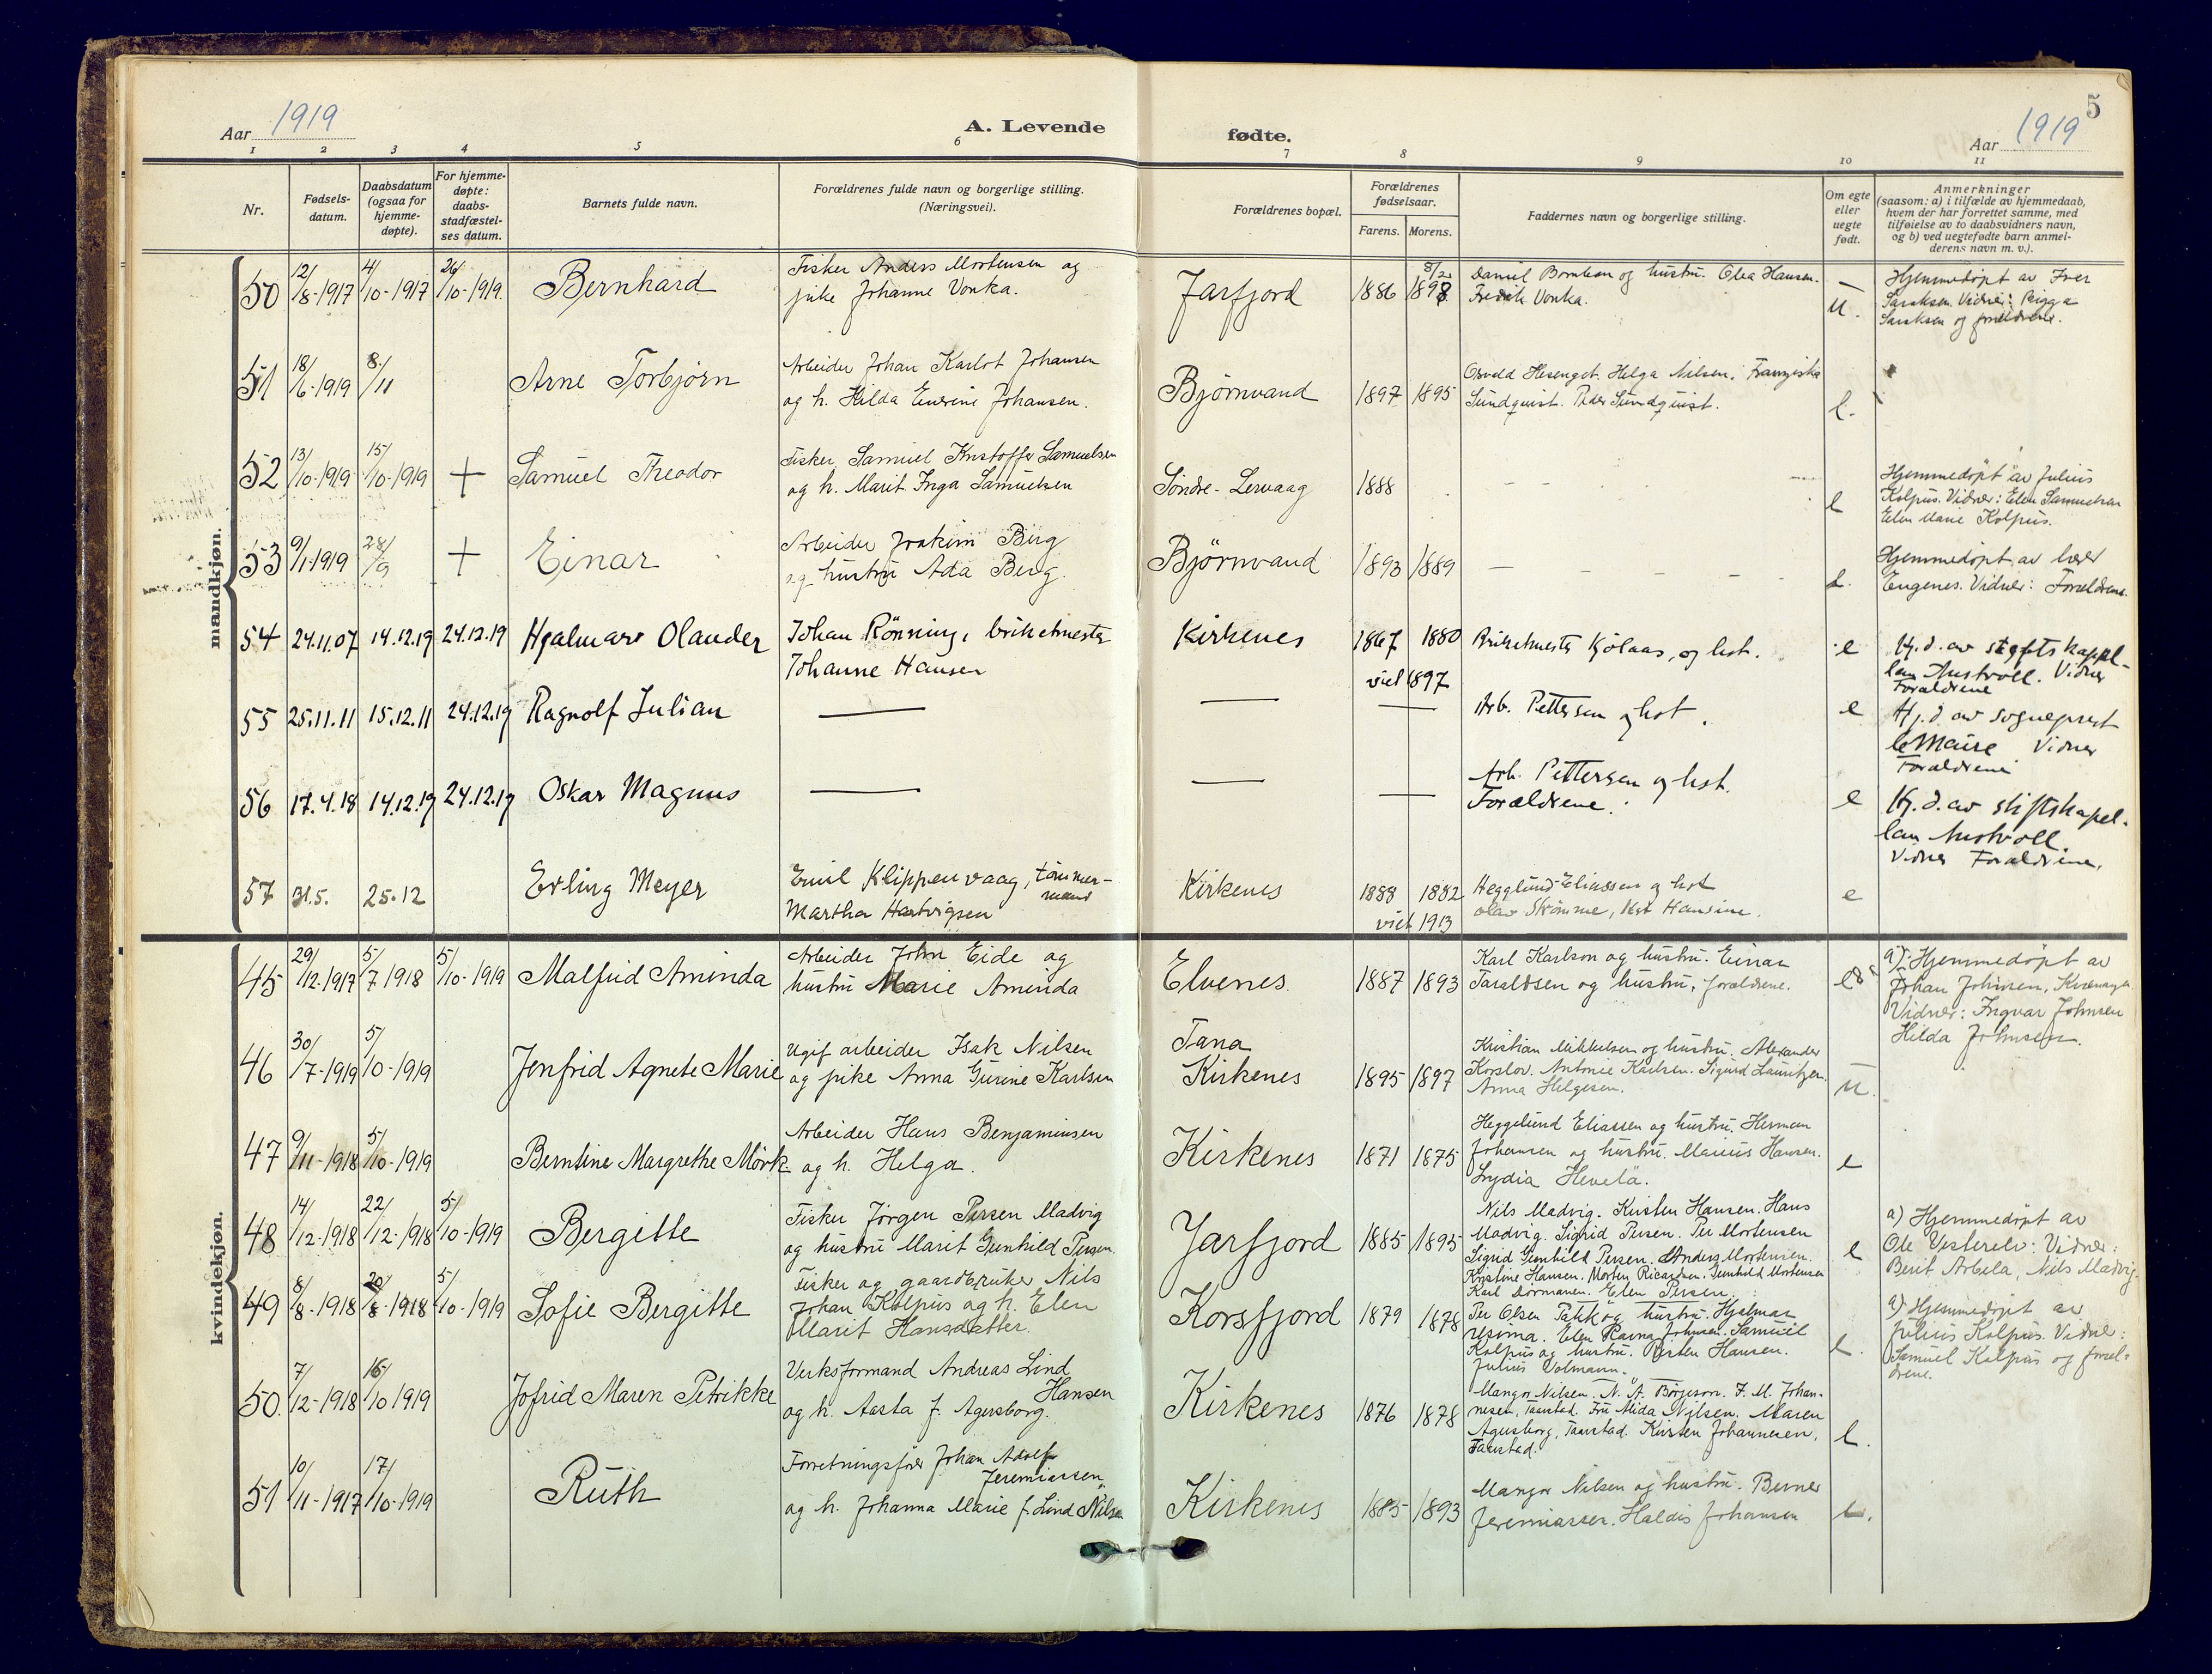 5
Aar 1919
A. Levende fødte.
Aar 1919
1 2 3 4 5 6 7 8 9 10 11
Nr.
Fødsels-
datum.
Daabsdatum
(ogsaa for
hjemme-
døpte).
For hjemme-
døpte:
daabs-
stadfæstel-
ses datum.
Barnets fulde navn.
Forældrenes fulde navn og borgerlige stilling.
(Næringsvei).
Forældrenes bopæl.
Forældrenes
fødselsaar.
Farens. Morens.
Faddernes navn og borgerlige stilling.
Om egte
eller
uegte
født.
Anmerkninger
(saasom: a) i tilfælde av hjemmedaab,
hvem der har forrettet samme, med
tilføielse av to daabsvidners navn,
og b) ved uegtefødte barn anmel-
derens navn m. v.).
mandkjøn.
50 12/8-1917 4/10-1917 26/10-1919 Bernhard
Fisker Anders Mortensen og
pike Johanne Vonka.
Jarfjord 1886 8/2 1898
Daniel og hustru. Olea Hansen.
Fredrik Vonka.
u.
Hjemmedøpt av Iver
Vidner: Brigga
og forældrene.
51 18/6-1919 8/11 Arne Torbjørn
Arbeider Johan Karlot Johansen
og h. Hilda Enerine Johansen.
Bjørnvand 1897 1895
Osvald Hesenget. Helga Nilsen. Franziska
Sundquist. Peder Sundquist.
e.
52 13/10-1919 15/10-1919 + Samuel Theodor
Fisker Samuel Kristoffer Samuelsen
og h. Marit Inga Samuelsen
Søndre-Lervaag 1888 – – – –
e
Hjemmedøpt av Julius
Kolpus. Vidner: Elen Samuelsen
Elen Marie Kolpus.
53 9/1-1919 28/9 + Einar
Arbeider Joakim Berg
og hustru Ada Berg.
Bjørnvand 1893 1889 – – – – –
e.
Hjemmedøpt av lærer
Engenes. Vidner: Forældrene.
54 24.11.07 14.12.19 24.12.19 Hjalmar Olander
Johan Rønning, briketmester
Johanne Hansen
Kirkenes 1867 1880
viet 1897
Briketmester Kjølaas, og hst.
e
Hj.d. av stiftskapel-
lan Austvoll. Vidner
Forældrene
55 25.11.11 15.12.11 24.12.19 Ragnolf Julian — — —
Arb. Pettersen og hst.
e
Hj.d. av sogneprest
leMaire Vidner
Forældrene
56 17.4.18 14.12.19 24.12.19 Oskar Magnus — — —
Arb. Pettersen og hst.
Forældrene.
e
Hj.d. av stiftskapel-
lan Austvoll.
Vidner Forældrene.
57 31.5. 25.12 Erling Meyer
Emil Klippenvaag, tømmer-
mand
Martha Hartvigsen
Kirkenes 1888 1882
viet 1913
Hegglund Eliassen og hst
Olav Strømme, Hansine.
e
kvindekjøn.
45 29/12-1917 5/7 1918 5/10-1919 Malfrid Aminda
Arbeider John Eide og
hustru Marie Aminda
Elvenes. 1887 1893
Karl Karlson og hustru. Einar
Taraldsen og hustru, forældrene.
e
a): Hjemmedøpt av
Johan Johnsen,
Vidner: Ingvar Johnsen
Hilda Johnsen.
46 30/7-1919 5/10-1919 Jenfrid Agnete Marie
Ugif arbeider Isak Nilsen
og pike Anna Gurine Karlsen
Tana
Kirkenes 1895 1897
Kristian Mikkelsen og hustru. Alexander
Koslov. Antonie Karlsen. Sigurd Lauritzen.
Anna Helgesen.
u.
47 9/11-1918 5/10-1919 Berntine Margrethe Mørk
Arbeider Hans Benjaminsen
og h. Helga.
Kirkenes 1871 1875
Heggelund Eliassen og hustru. Herman
Johansen og hustru. Marius Hansen.
Lydia Hevelä.
e
48 14/12-1918 22/12-1918 5/10-1919 Bergitte
Fisker Jørgen Persen Madvig
og hustru Marit Gunhild Persen.
Jarfjord 1885 1895
Nils Madvig. Kirsten Hansen. Hans
Madvig. Sigrid Persen. Per Mortensen
Sigrid Gunhild Persen. Anders Mortensen.
Kristine Hansen. Morten Gunhild Mortensen
Karl Elen Persen.
e
a) Hjemmedøpt av
Ole Vesterelv: Vidner:
Berit Arbela, Nils Madvig.
49 8/8-1918 20/8-1918 5/10-1919 Sofie Bergitte
Fisker og gaardbruker Nils
Johan Kolpus og h. Elen
Marit Hansdatter.
Korsfjord 1879 1878
Per Olsen og hustru. Hjalmar
Elen Ravna Johnsen. Samuel
Kolpus og hustru. Hansen.
Julius Volmann.
e.
a) Hjemmedøpt av
Julius Kolpus. Vidner:
Samuel Kolpus og foræl-
drene.
50. 7/12-1918 16/10 1919 Jofrid Maren Petrikke
Verksformand Andreas Lind
Hansen
og h. Aasta f. Agersborg.
Kirkenes 1876 1878
Mangor Nilsen. N. A. Børjeson. F. M. Johan-
nesen, Taarstad. Fru Alida Nilsen. Maren
Agersborg, Taarstad. Kirsten Johannesen,
Taarstad.
e.
51 10/11-1917 17/10-1919 Ruth
Forretningsfører Johan Adolf
Jeremiassen
og h. Johanna Marie f. Lind Nilsen
Kirkenes 1885 1893
Mangor Nilsen og hustru. Berner
Jeremiassen. Haldis Johansen
e.